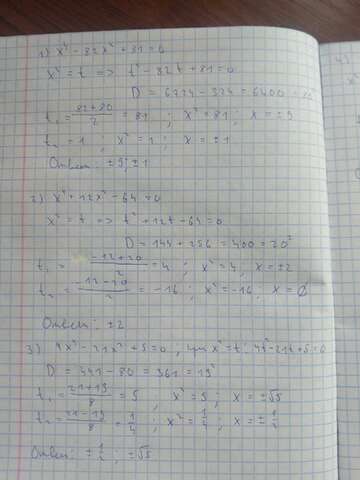 1) x⁴ - 82x² + 81 = 0
x² = t => t² - 82t + 81 = 0
D = 6724 - 324 = 6400 = 80²
t₁ = (82+80)/2 = 81 ; x² = 81 ; x = ±9
t₂ = 1 ; x² = 1 ; x = ±1
Ответ: ±9; ±1
4)
2) x⁴ + 12x² - 64 = 0
x² = t => t² + 12t - 64 = 0
D = 144 + 256 = 400 = 20²
t₁ = (-12+20)/2 = 4 ; x² = 4 , x = ±2
t₂ = (-12-20)/2 = -16 ; x² = -16 ; x = ∅
Ответ: ±2
3) 4x⁴ - 21x² + 5 = 0 , при x² = t: 4t² - 21t + 5 = 0
D = 441 - 80 = 361 = 19²
t₁ = (21+19)/8 = 5 ; x² = 5 ; x = ±√5
t₂ = (21-19)/8 = 1/4 ; x² = 1/4 ; x = ±1/2
Ответ: ±1/2 ; ±√5